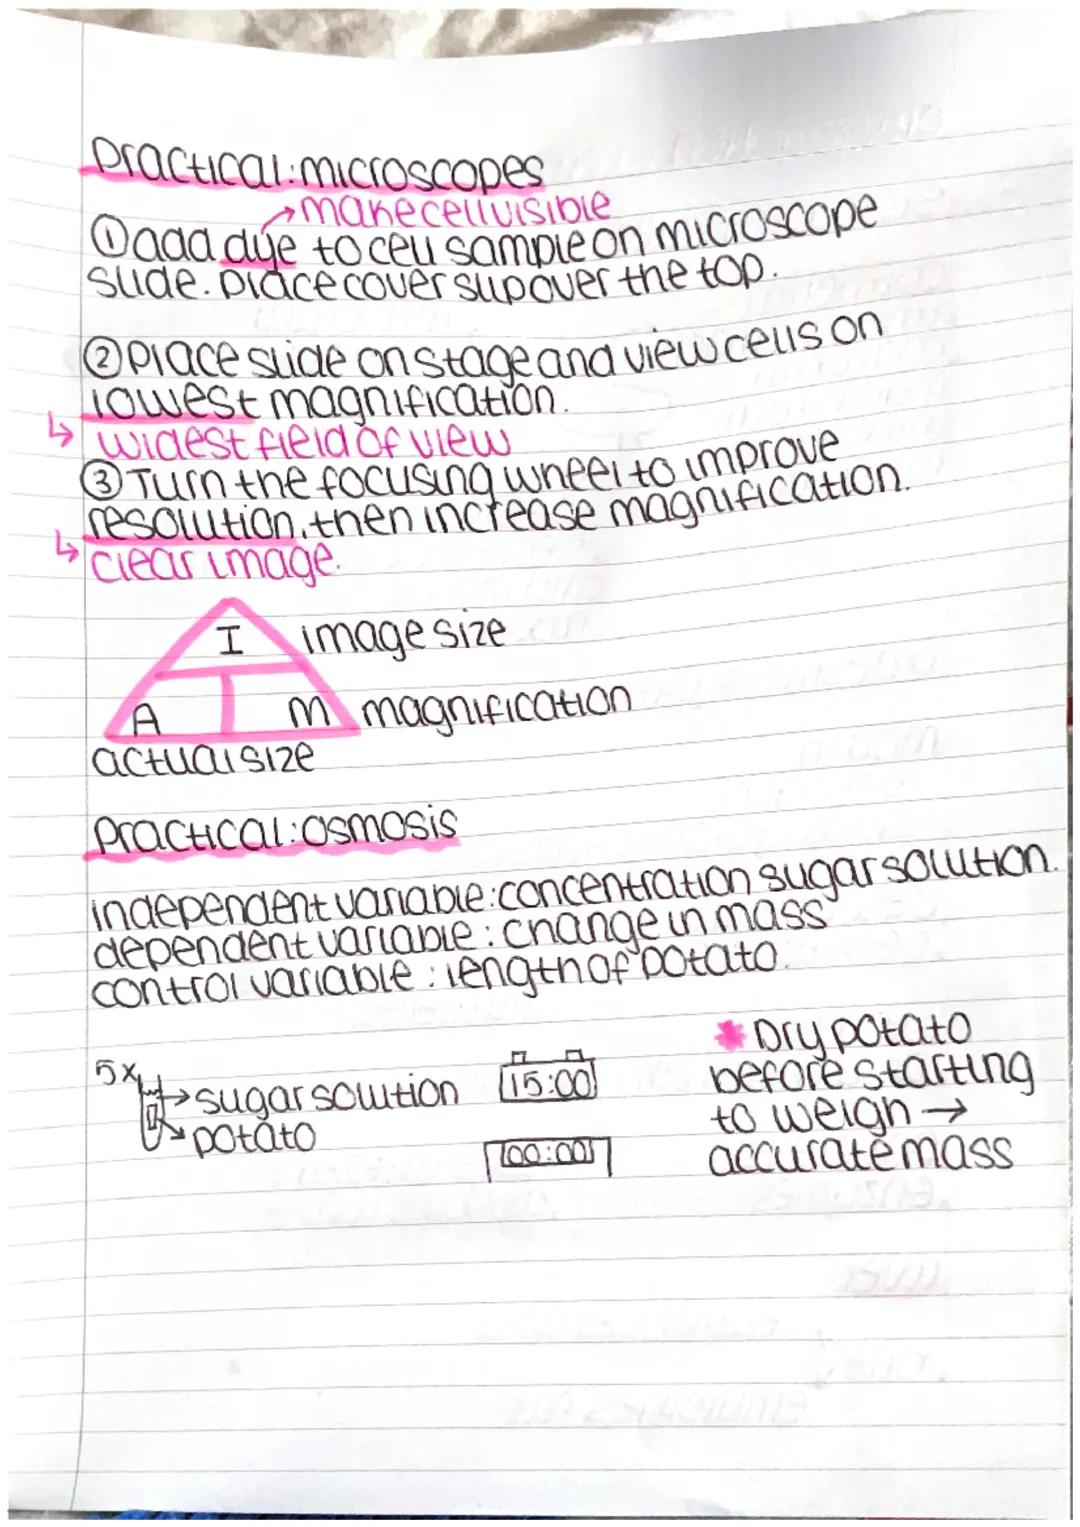 Practical: microscopes
→make cell visible
① add dye to cell sample on microscope
slide. Place cover slip over the top.
② Place slide on stage and view cells on
lowest magnification.
↳ widest field of view
③ Turn the focusing wheel to improve
resolution, then increase magnification.
↳ clear image.
I image size
A M magnification
actual size
Practical: osmosis
independent variable: concentration sugar solution.
dependent variable: change in mass
control variable: length of potato.
5x
→ sugar solution
→ potato
15:00
00:00
* Dry potato
before starting
to weigh →
accurate mass